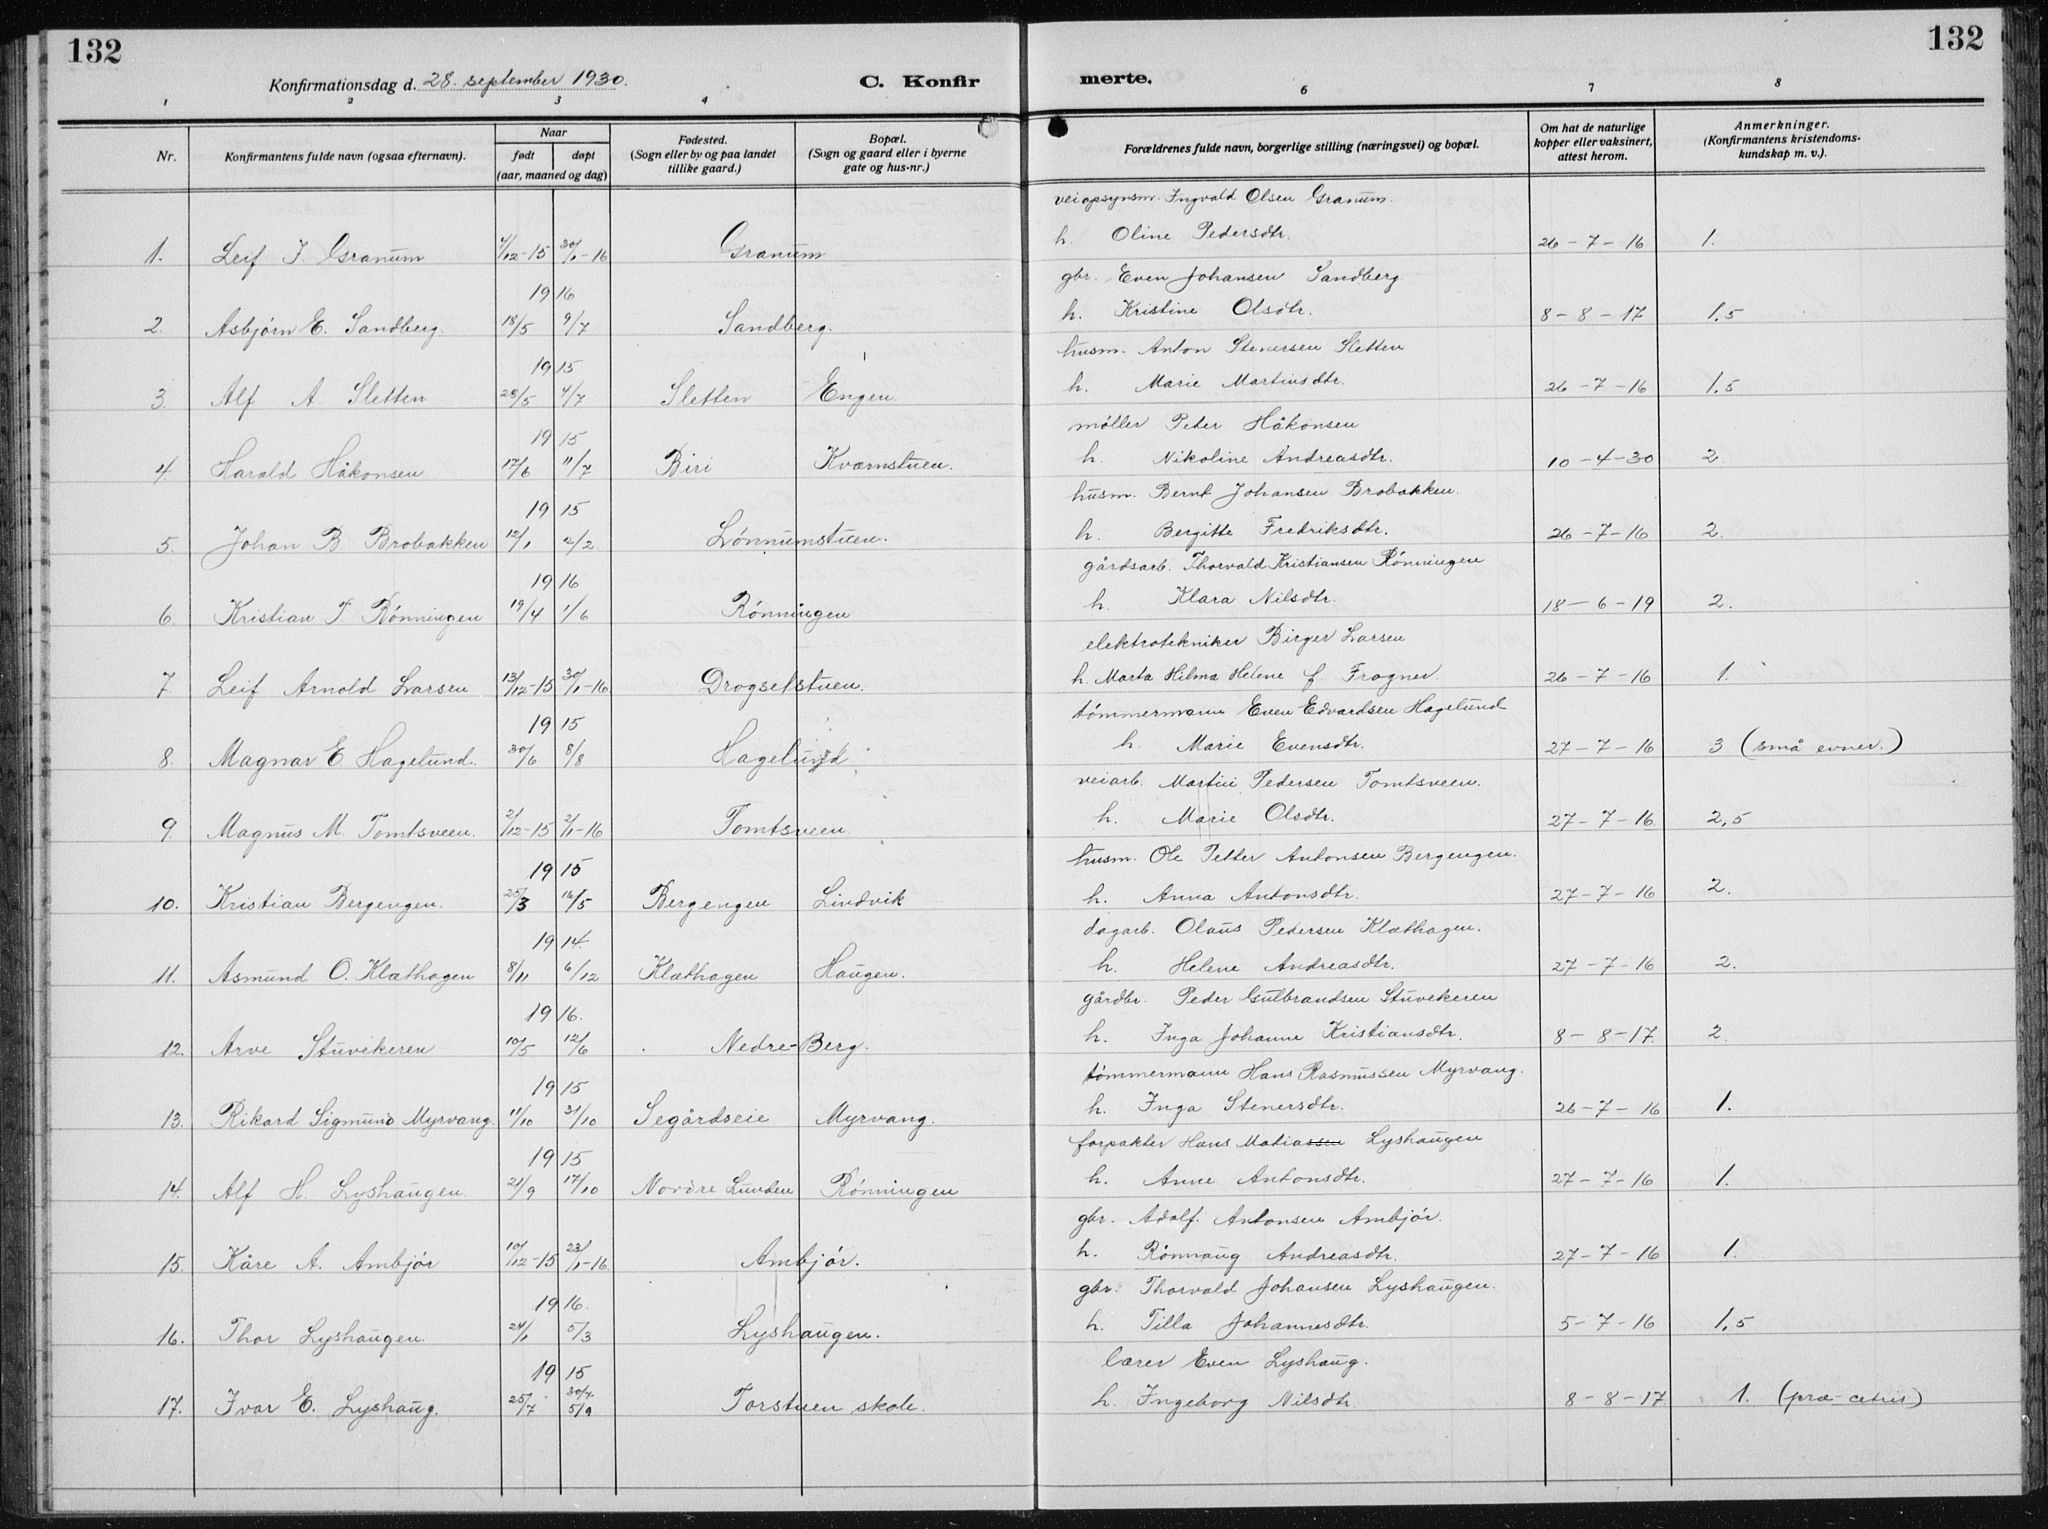 132
132
Konfirmationsdag d. 28. september 1930.
C. Konfirmerte.
1 2 3 4 6 7 8
Nr.
Konfirmantens fulde navn (ogsaa efternavn).
Naar
født døpt
(aar, maaned og dag)
Fødested.
(Sogn eller by og paa landet
tillike gaard.)
Bopæl.
(Sogn og gaard eller i byerne
gate og hus-nr.)
Forældrenes fulde navn, borgerlige stilling (næringsvei) og bopæl.
Om hat de naturlige
kopper eller vaksinert,
attest herom.
Anmerkninger.
(Konfirmantens kristendoms-
kundskap m. v.).
veiopsynsm. Ingvald Olsen Granum.
1. Leif I. Granum 4/12-15 30/1-16 Granum h. Oline Pedersdtr. 26-7-16 1.
gbr. Even Johansen Sandberg
1916
2. Asbjørn E. Sandberg. 18/5 9/7 Sandberg. h. Kristine Olsdtr. 8-8-17 1,5
husm. Anton Stenersen Sletten
1915
3. Alf A Sletten 28/5 4/7 Sletten Engen. h. Marie Martinsdtr. 26-7-16 1,5
møller Peter Håkonsen
1915
4. Harald Håkonsen 17/6 11/7 Biri Kværnstuen. h. Nikoline Andreasdtr. 10-4-30 2.
husm. Bernt Johansen Brobakken.
1915
5. Johan B. Brobakken 12/1 2/2 Lønnumstuen. h. Bergitte Fredriksdtr. 26-7-16 2.
gårdsarb. Thorvald Kristiansen Rønningen
1916
6. Kristian T. Rønningen 19/4 1/6 Rønningen h. Klara Nilsdtr. 18-6-19 2.
elektrotekniker Birger Larsen
7 Leif Arnold Larsen 13/12-15 30/1-16 Drogsetstuen. h. Marta Hilma Helene f. Frogner 26-7-16 1.
tømmermann Even Edvardsen Hagelund
1915
8. Magnar E. Hagelund. 30/6 8/8 Hagelund h. Marie Evensdtr. 27-7-16 3 (små evner.)
veiarb. Martin Pedersen Tomtsveen.
9. Magnus M. Tomtsveen. 2/12-15 2/1-16 Tomtsveen. h. Marie Olsdtr. 27-7-16 2,5
husm. Ole Petter Antonsen Bergengen.
1915
10. Kristian Bergengen. 25/3 16/5 Bergengen Lindvik h. Anna Antonsdtr. 27-7-16 2.
dagarb. Olaus Pedersen Klæthagen.
1914.
11. Asmund O. Klæthagen 8/11 6/12 Klæthagen Haugen. h. Helene Andreasdtr. 27-7-16 2.
gårdbr. Peder Gulbrandsen Stuvekeren
1916.
12. Arve Stuvekeren 10/5 12/6 Nedre-Berg. h. Inga Johanne Kristiansdtr. 8-8-17. 2
tømmermann Hans Rasmussen Myrvang.
1915
13. Rikard Sigmund Myrvang. 11/10 31/10 Segårdseie Myrvang. h. Inga Stenersdtr. 26-7-16 1.
forpakter Hans Matiassen Lyshaugen
1915
14. Alf H. Lyshaugen 21/9 17/10 Nordre Lunden Rønningen h. Anne Antonsdtr. 27-7-16 1.
gbr. Adolf Antonsen Ambjør.
15. Kåre A. Ambjør 10/12-15 23/1-16 Ambjør. h. Rønnaug Andreasdtr. 27-7-16 1.
gbr. Thorvald Johansen Lyshaugen.
1916.
16. Thor Lyshaugen. 24/1 5/3 Lyshaugen. h. Tilla Johannesdtr. 5-7-16 1,5
lærer Even Lyshaug.
1915
17. Ivar E. Lyshaug. 25/7 30/7. 5/9 Torstuen skole. h. Ingeborg Nilsdtr. 8-8-17 1. (præ cetris)